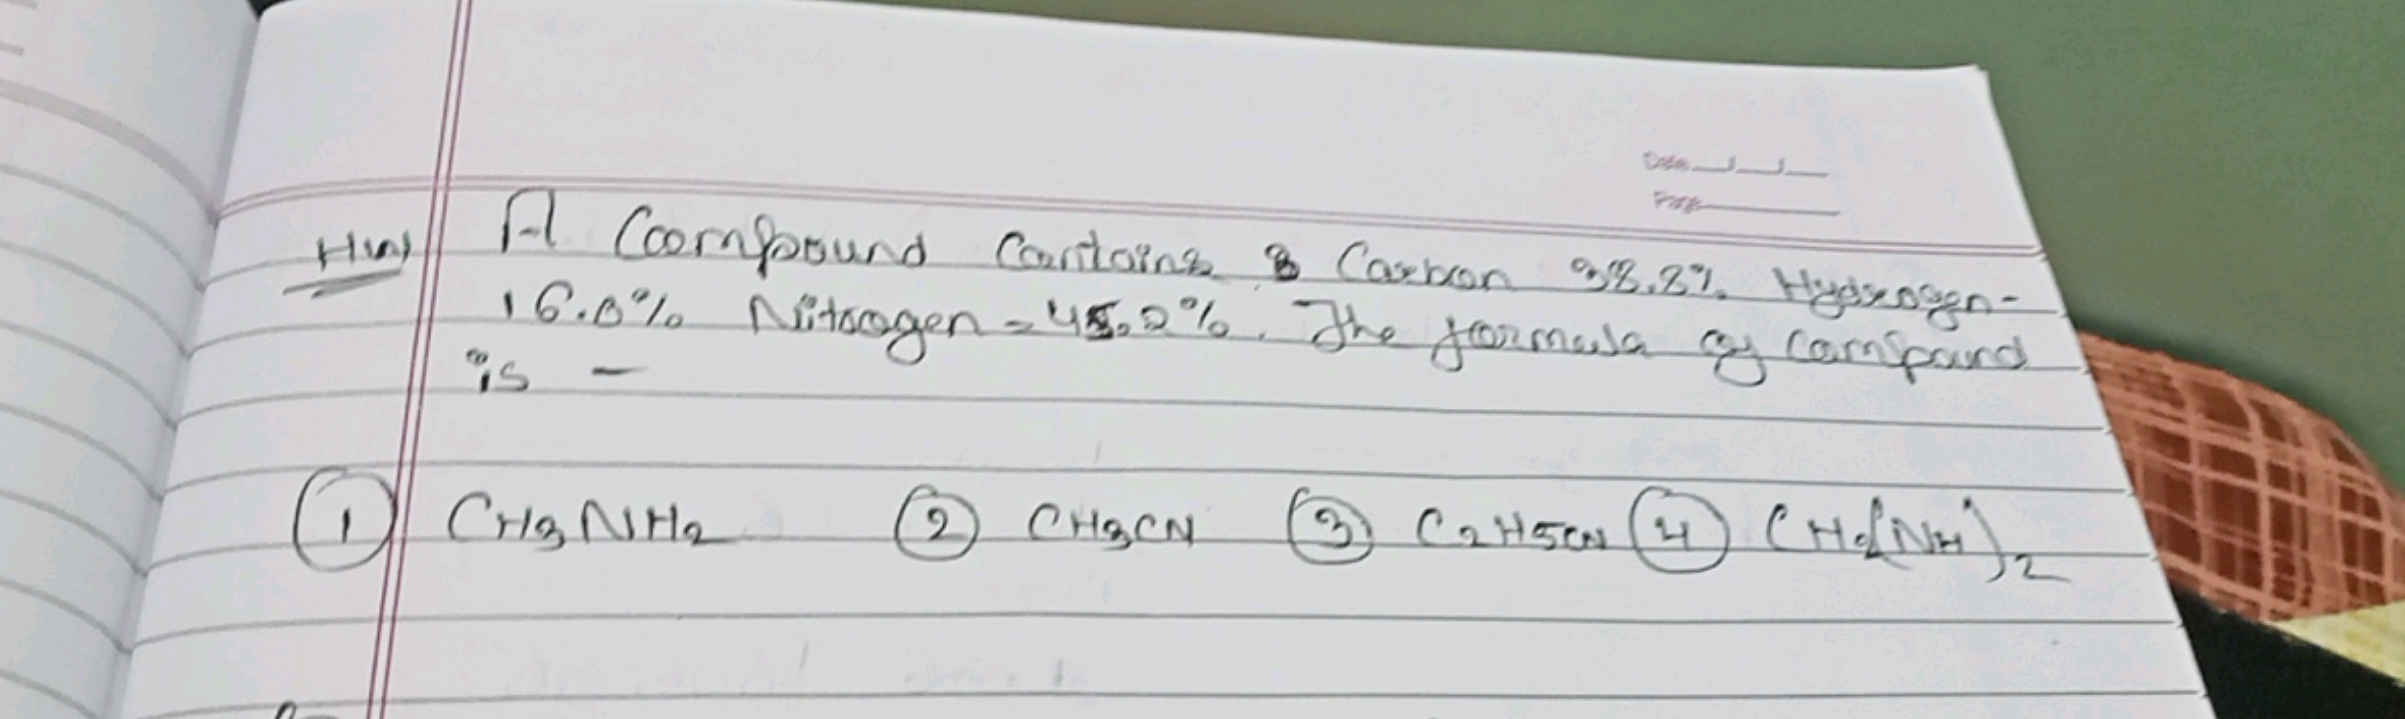 Date
Page
HW) A Coompound Contains Carbon 38.8% Hydrogen-
16.0% Nitrogen = 45.2%. The formula of compound
is -
① CH3NH2 ② CH3CN ③ C2H5CN ④ CH2(NH)2